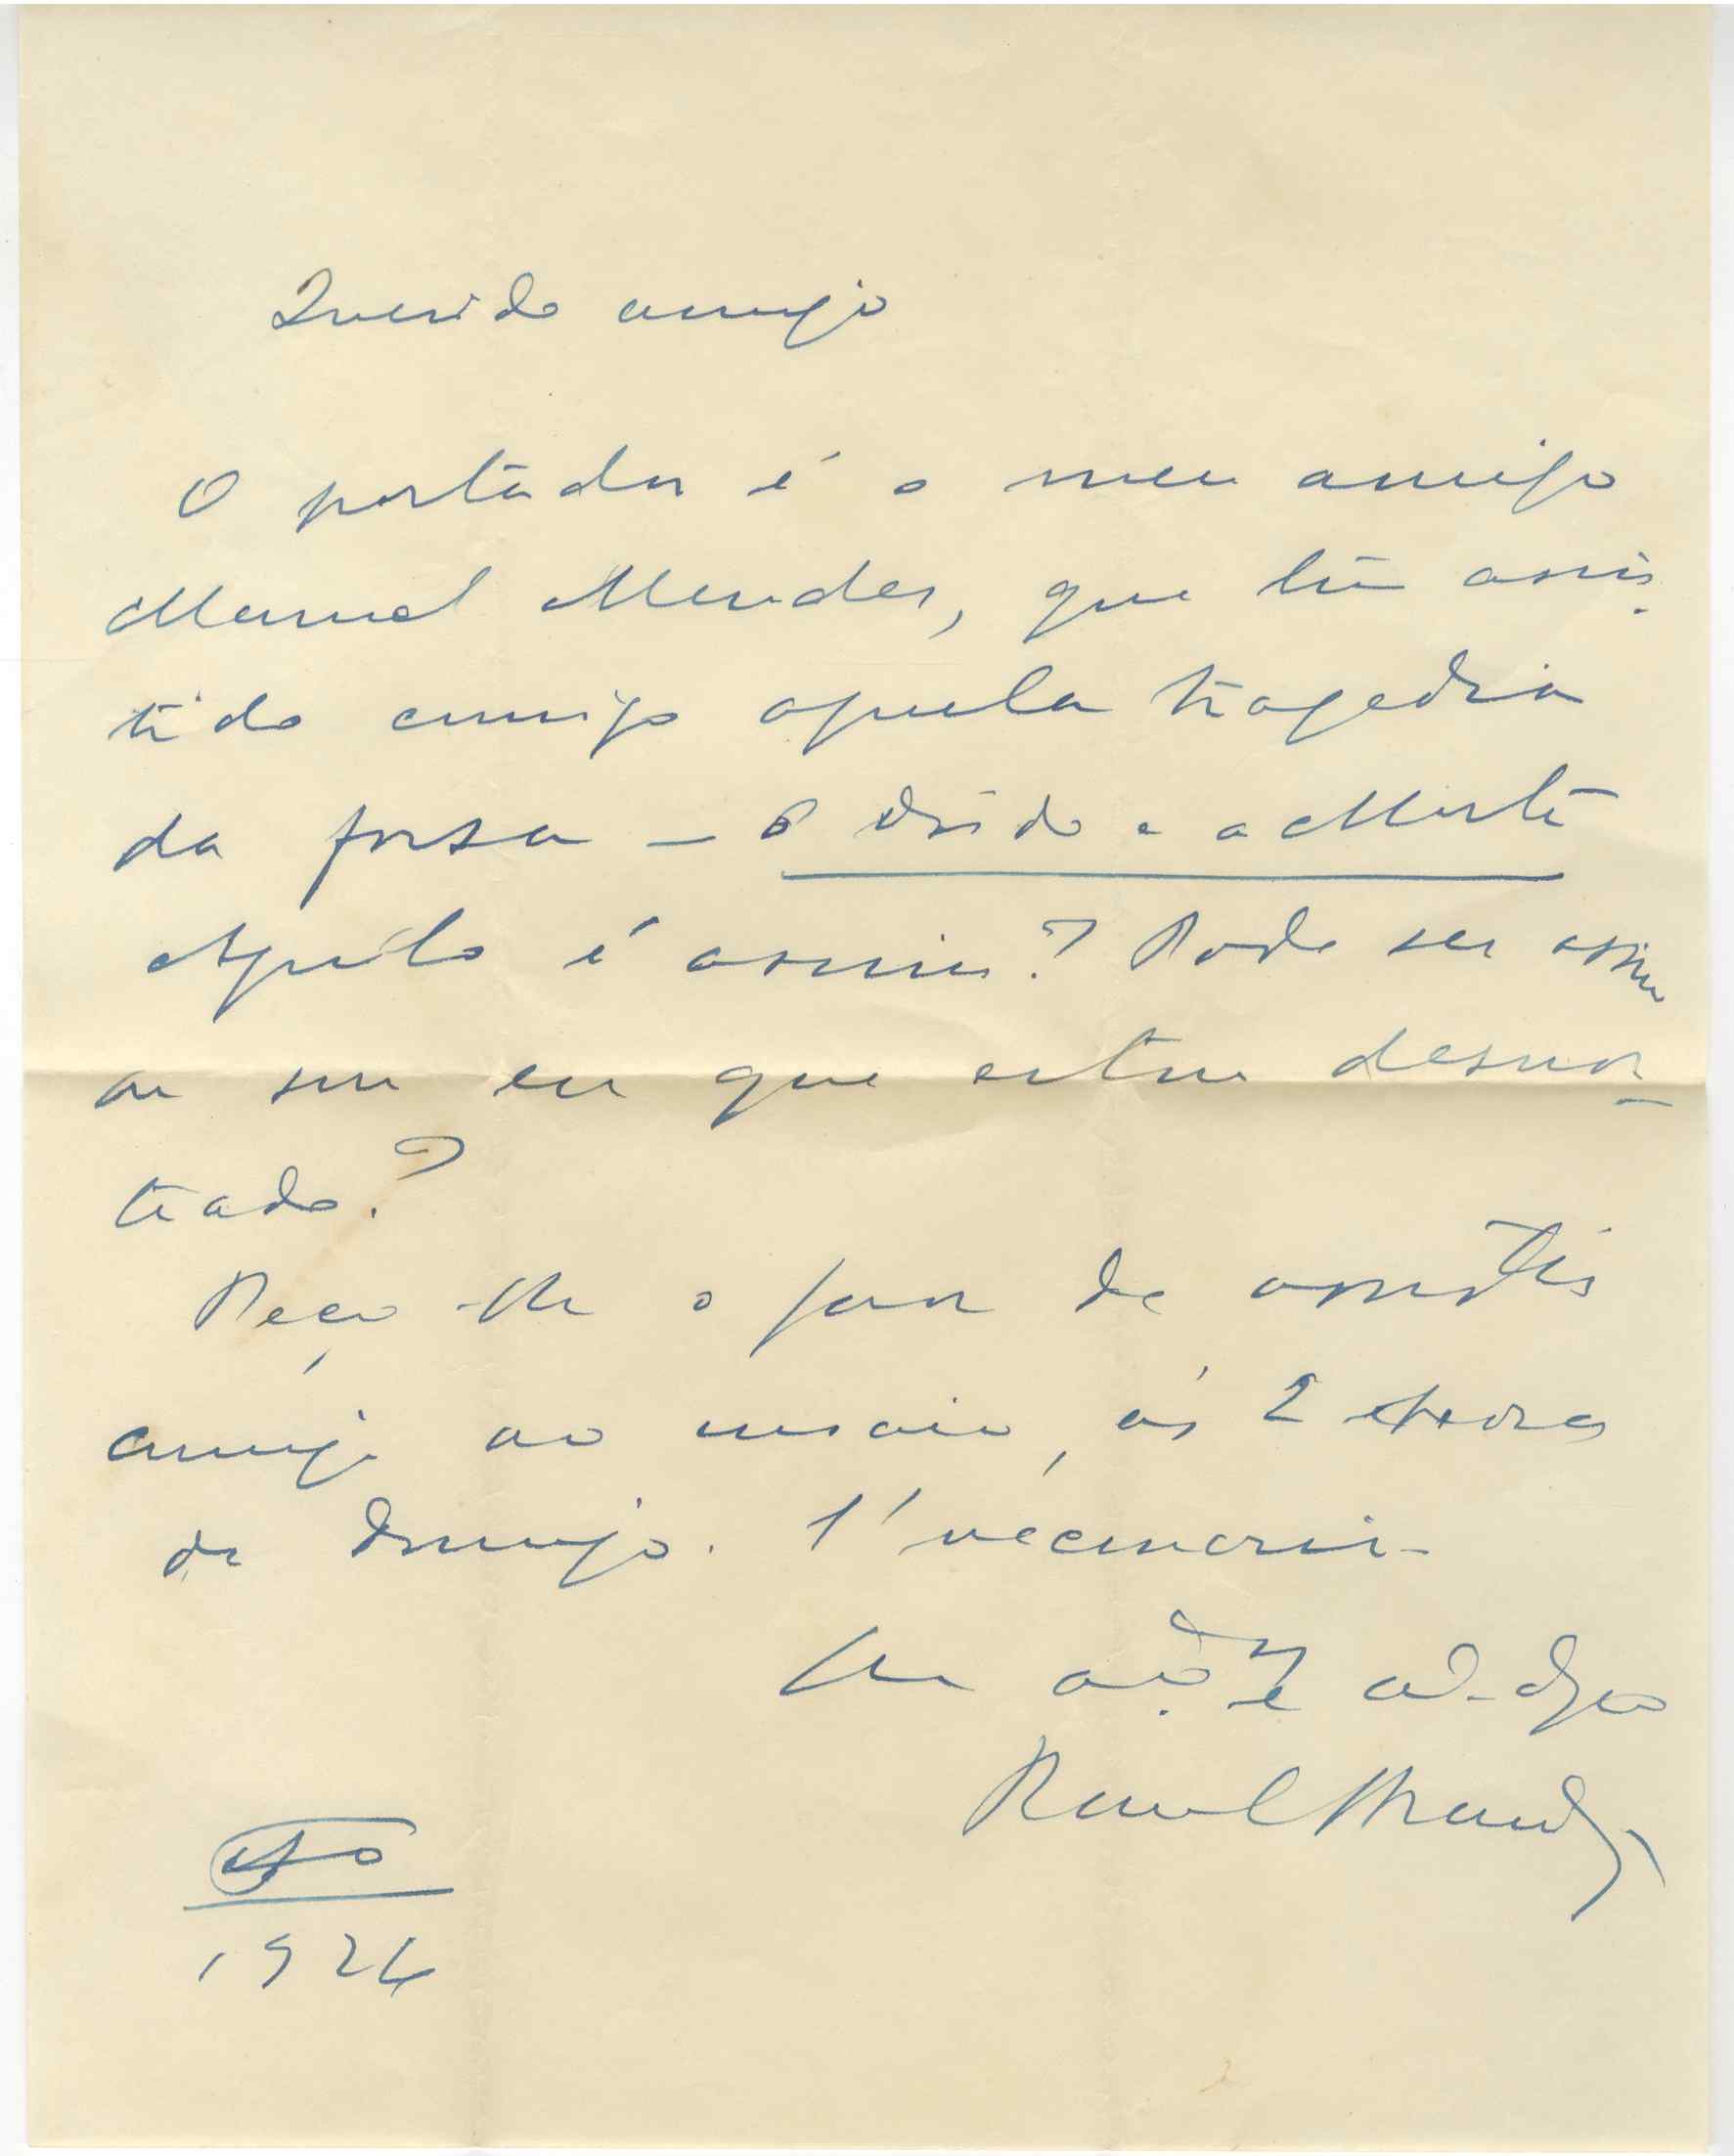 Querido amigo
O portador é o meu amigo
Manuel Mendes, que tem assis-
tido comigo aquela tragedia
da farsa – O Doido e a Morte
Aquilo é assim? Pode ser assim
ou sou eu que estou desnor-
teado?
Peço-lhe o favor de assistir
comigo ao ensaio, ás 2 horas
de Domingo. É necessario.
adm.ᵒʳ e
Raul Brandão
1926